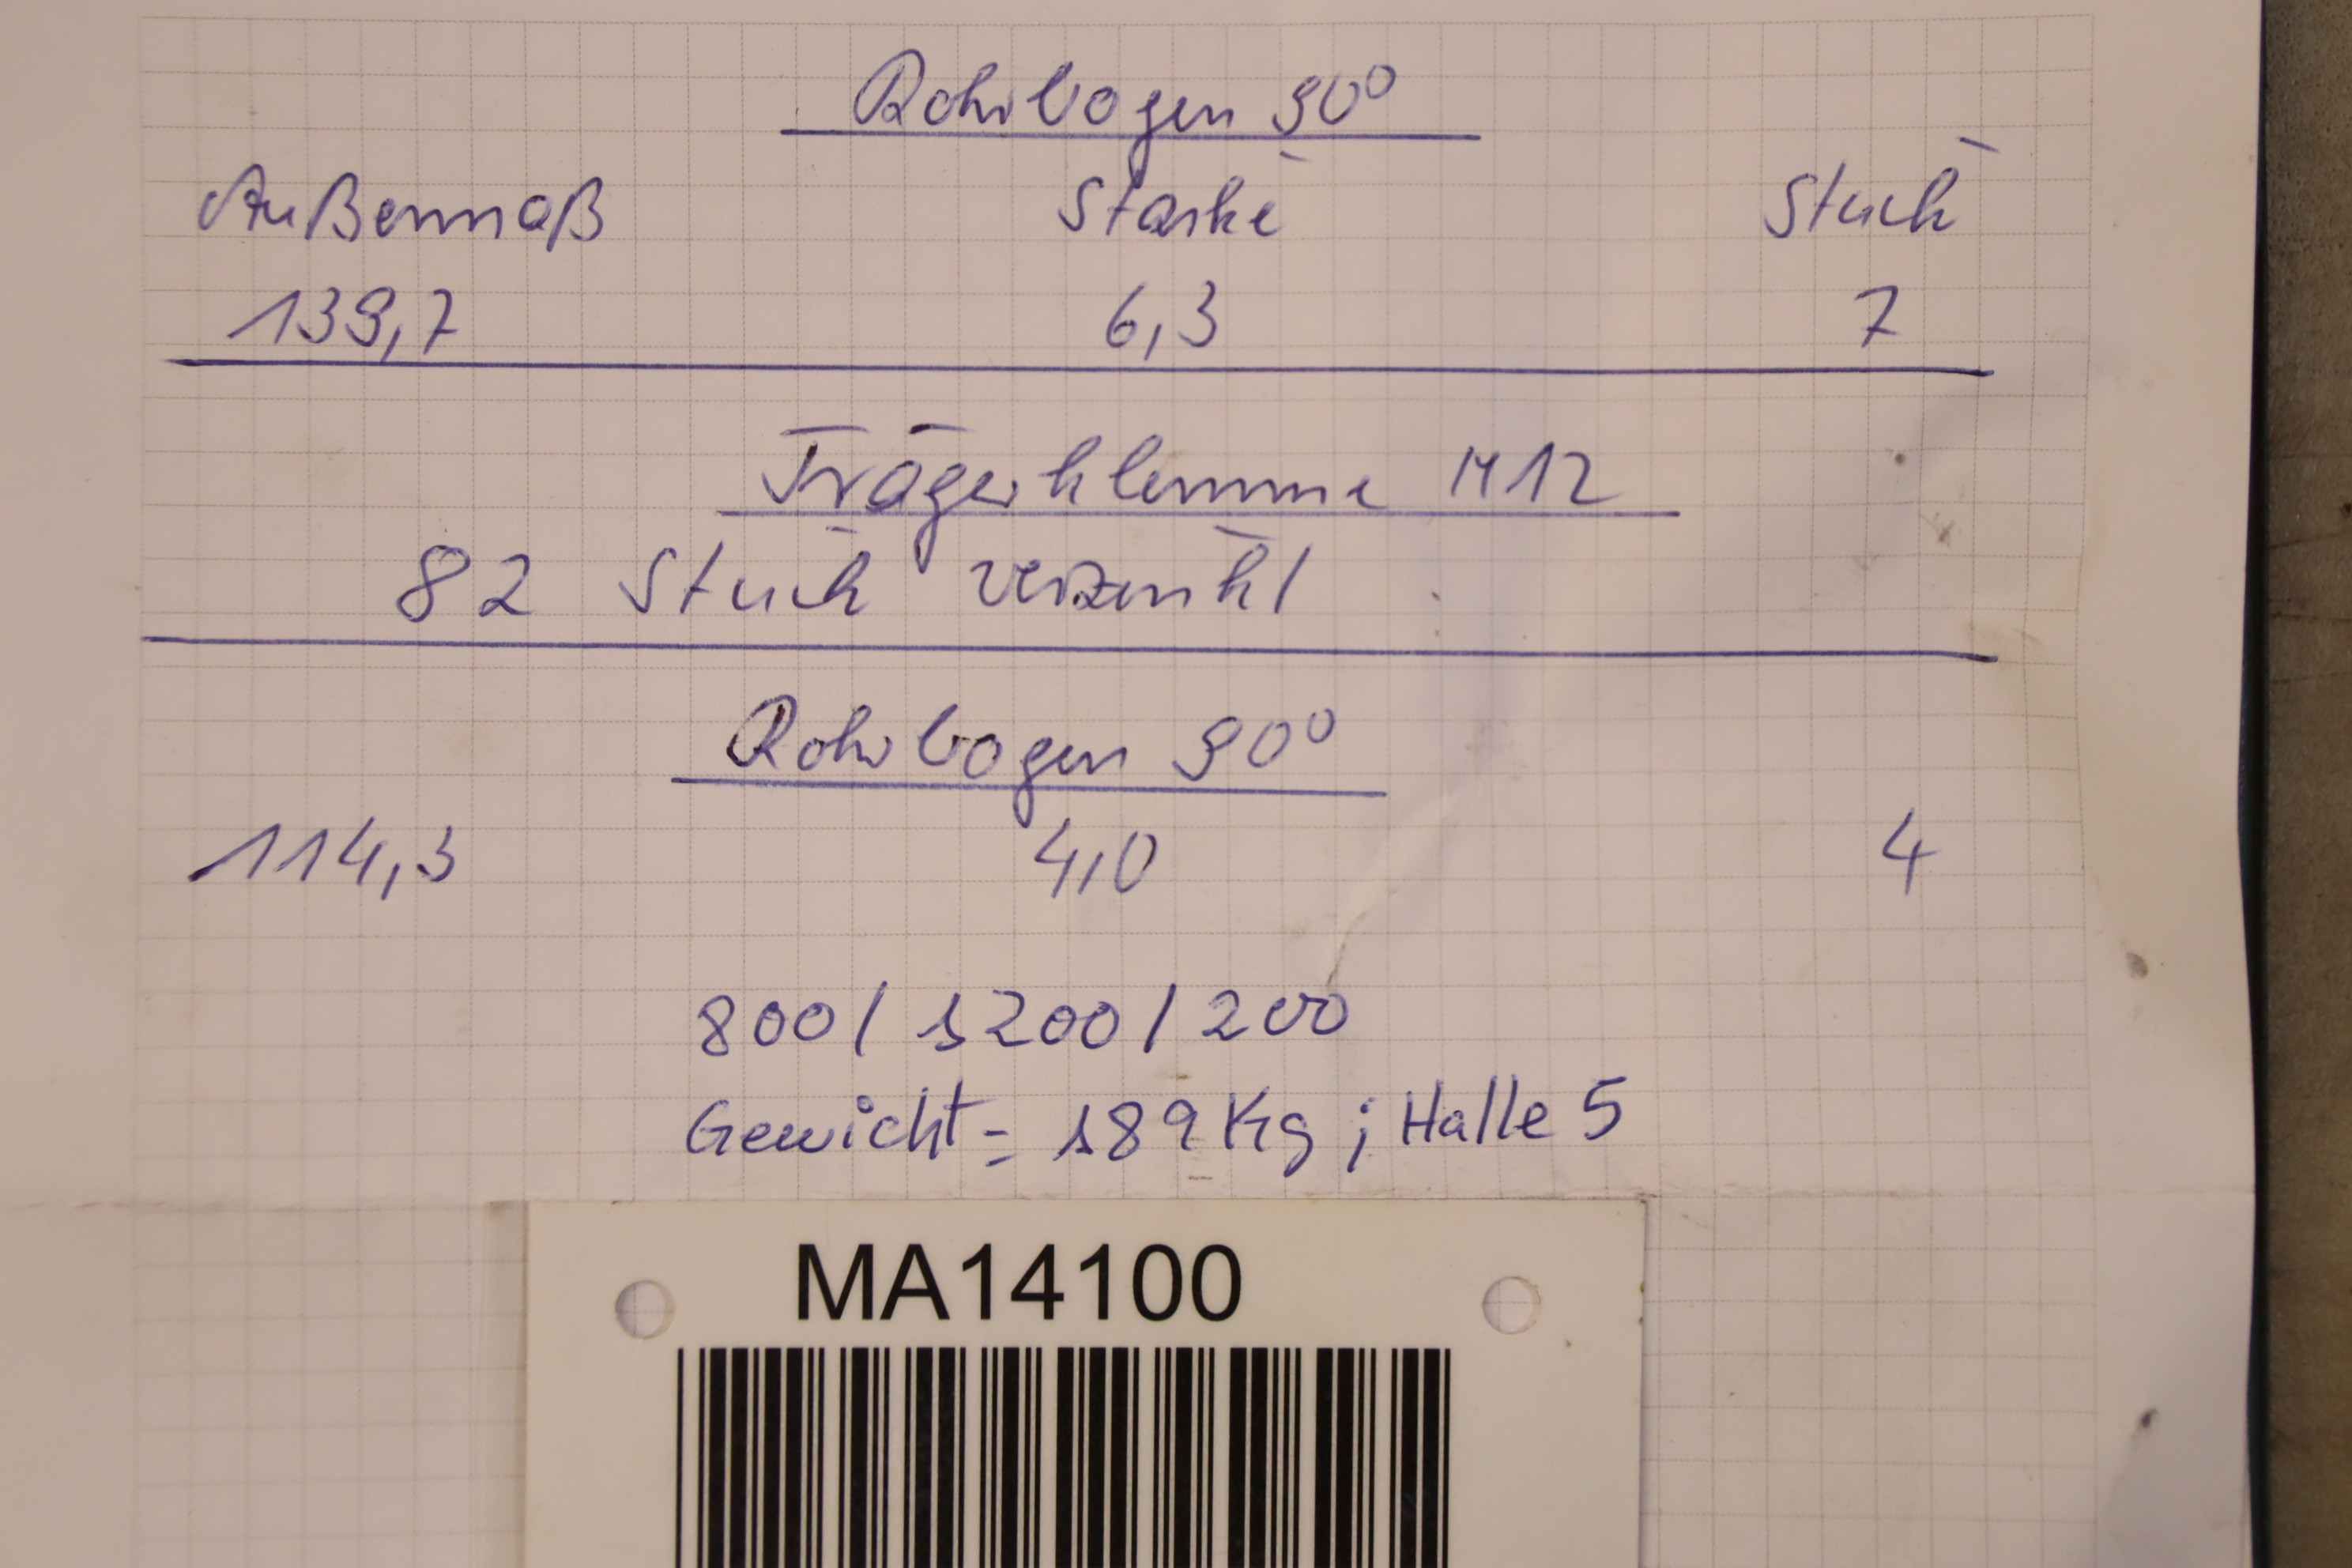 Rohrbogen 90°
Außenmaß Stärke Stück
139,7 6,3 7
Trägerklemme M12
82 Stück verzinkt
Rohrbogen 90°
114,3 4,0 4
800/1200/200
Gewicht = 189 Kg ; Halle 5
MA14100